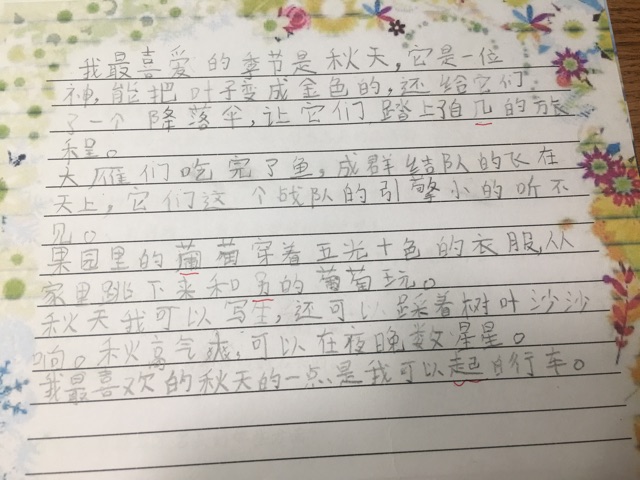 我最喜爱的季节是秋天,它是一位
神,能把叶子变成金色的,还给它们
了一个降落伞,让它们踏上自几的旅
程。
大雁们吃完了鱼,成群结队的飞在
天上,它们这个战队的引擎小的听不
见。
果园里的葡萄穿着五光十色的衣服从
家里跳下来和另的葡萄玩。
秋天我可以写生,还可以踩着树叶沙沙
响。秋高气爽,可以在夜晚数星星。
我最喜欢的秋天的一点是我可以起自行车。